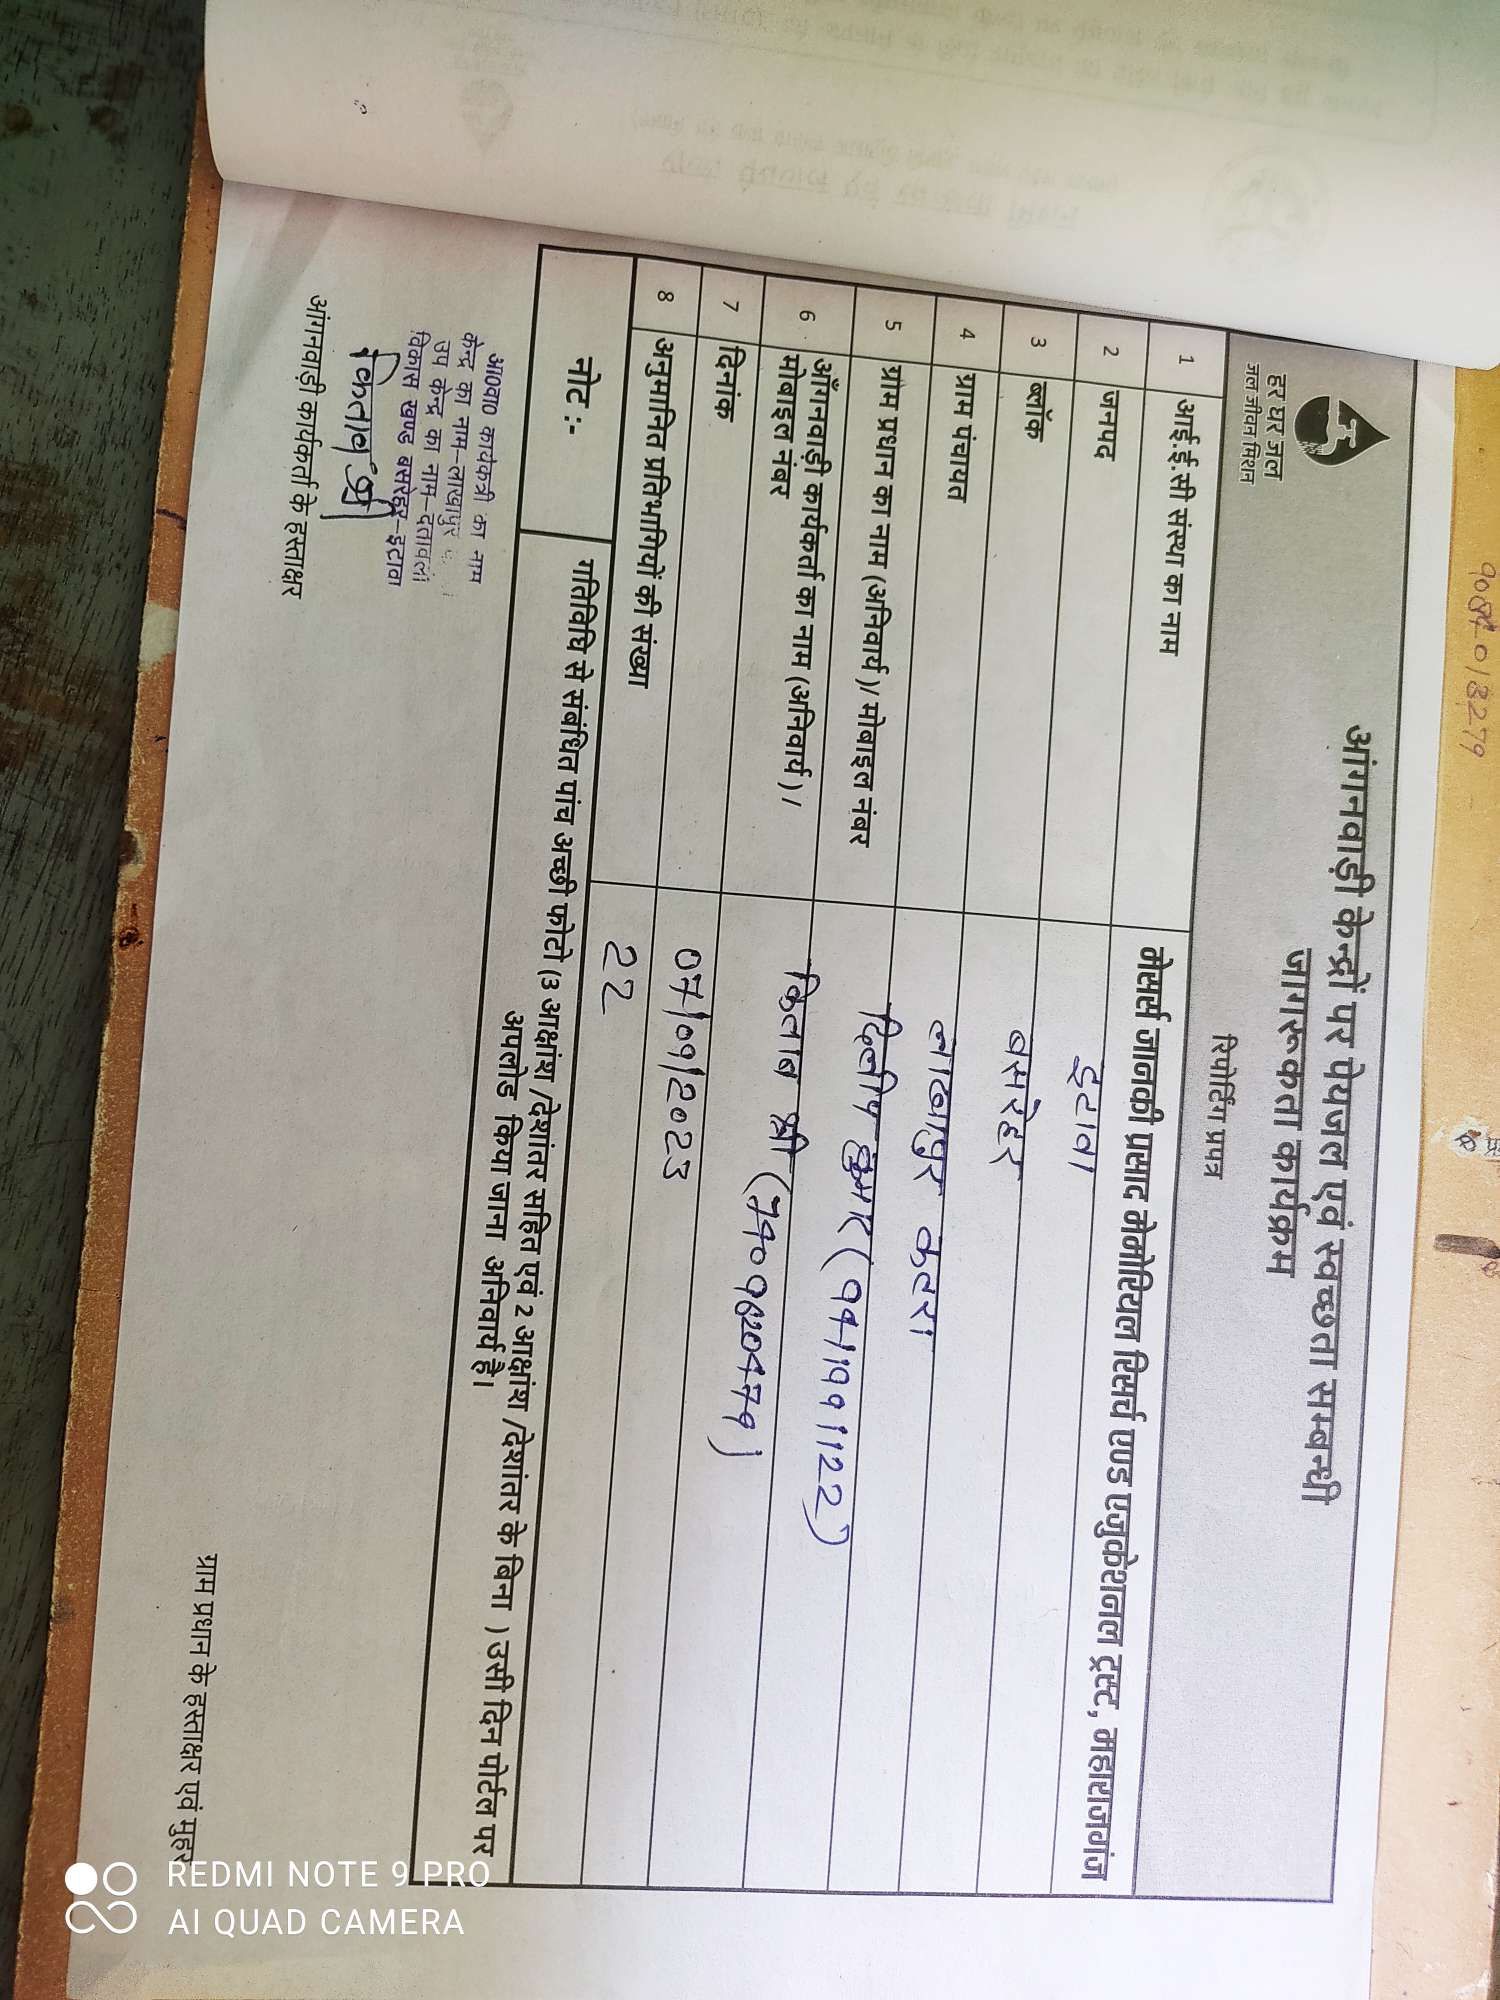 हर घर जल
जल जीवन मिशन
आंगनवाड़ी केन्द्रों पर पेयजल एवं स्वच्छता सम्बन्धी
जागरूकता कार्यक्रम
रिपोर्टिंग प्रपत्र
1 आई.ई.सी संस्था का नाम मेसर्स जानकी प्रसाद मेमोरियल रिसर्च एण्ड एजुकेशनल ट्रस्ट, महाराजगंज
2 जनपद इटावा
3 ब्लॉक बसरेहर
4 ग्राम पंचायत लाखापुर कटरा
5 ग्राम प्रधान का नाम (अनिवार्य)/ मोबाइल नंबर दिलीप कुमार
6 आँगनवाड़ी कार्यकर्ता का नाम (अनिवार्य) /
मोबाइल नंबर किताब श्री
7 दिनांक 07/09/2023
8 अनुमानित प्रतिभागियों की संख्या 22
नोट :- गतिविधि से संबंधित पांच अच्छी फोटो (3 आक्षांश /देशांतर सहित एवं 2 आक्षांश /देशांतर के बिना ) उसी दिन पोर्टल पर
अपलोड किया जाना अनिवार्य है।
आ0वा0 कार्यकत्री का नाम
केन्द्र का नाम-लाखापुर
उप केन्द्र का नाम-दतावली
विकास खण्ड बसरेहर-इटावा
किताब श्री
आंगनवाड़ी कार्यकर्ता के हस्ताक्षर
ग्राम प्रधान के हस्ताक्षर एवं मुहर
REDMI NOTE 9 PRO
AI QUAD CAMERA